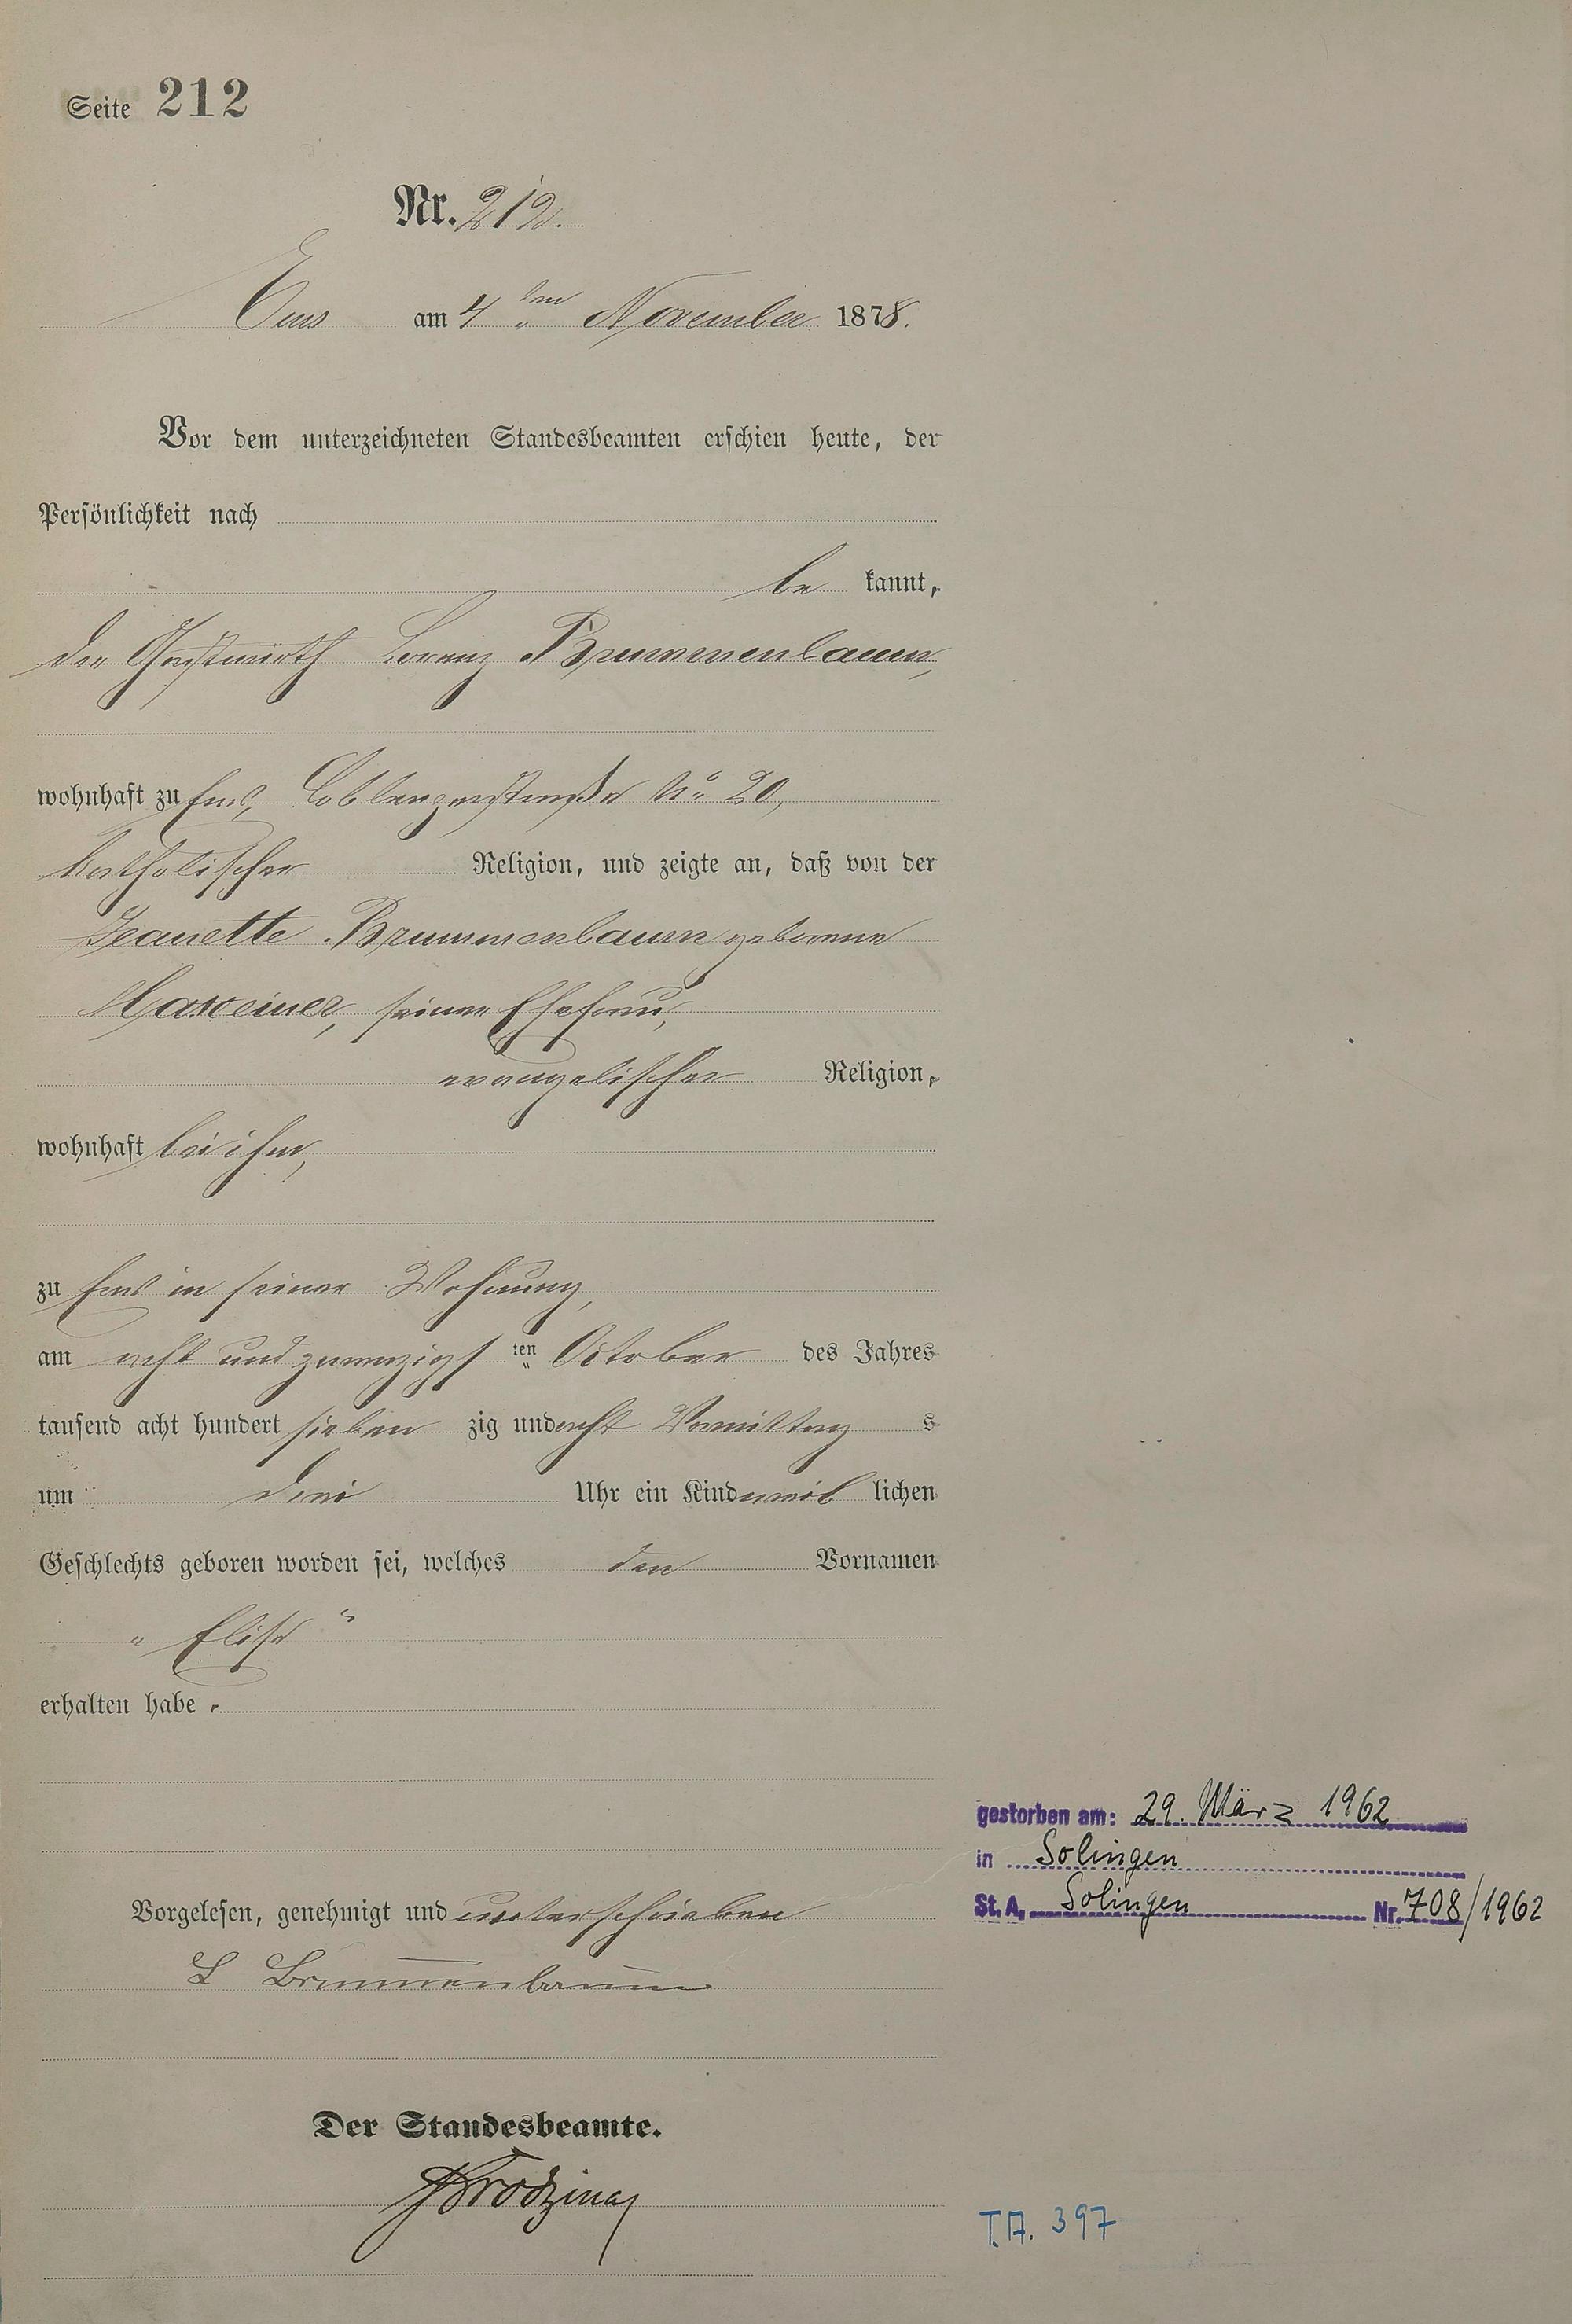 Seite 212
Nr. 212.
Ems am 4ten November 1878.
Vor dem unterzeichneten Standesbeamten erschien heute, der
Persönlichkeit nach
be kannt,
der Gastwirth Lorenz Brummenbaum,
wohnhaft zu Ems, Coblenzerstraße No 20,
katholischer Religion, und zeigte an, daß von der
Jeanette Brummenbaum geborene
Hasteiner, seiner Ehefrau,
evangelischer Religion,
wohnhaft bei ihm,
zu Ems in seiner Wohnung,
am acht und zwanzigs ten October des Jahres
tausend acht hundert sieben zig und acht Vormittag s
um drei Uhr ein Kind weib lichen
Geschlechts geboren worden sei, welches den Vornamen
„ Elise “
erhalten habe.
Vorgelesen, genehmigt und unterschrieben
L Brummenbaum
Der Standesbeamte.
gestorben am: 29. März 1962
in Solingen
St. A. Solingen Nr. 708/1962
T.A. 397